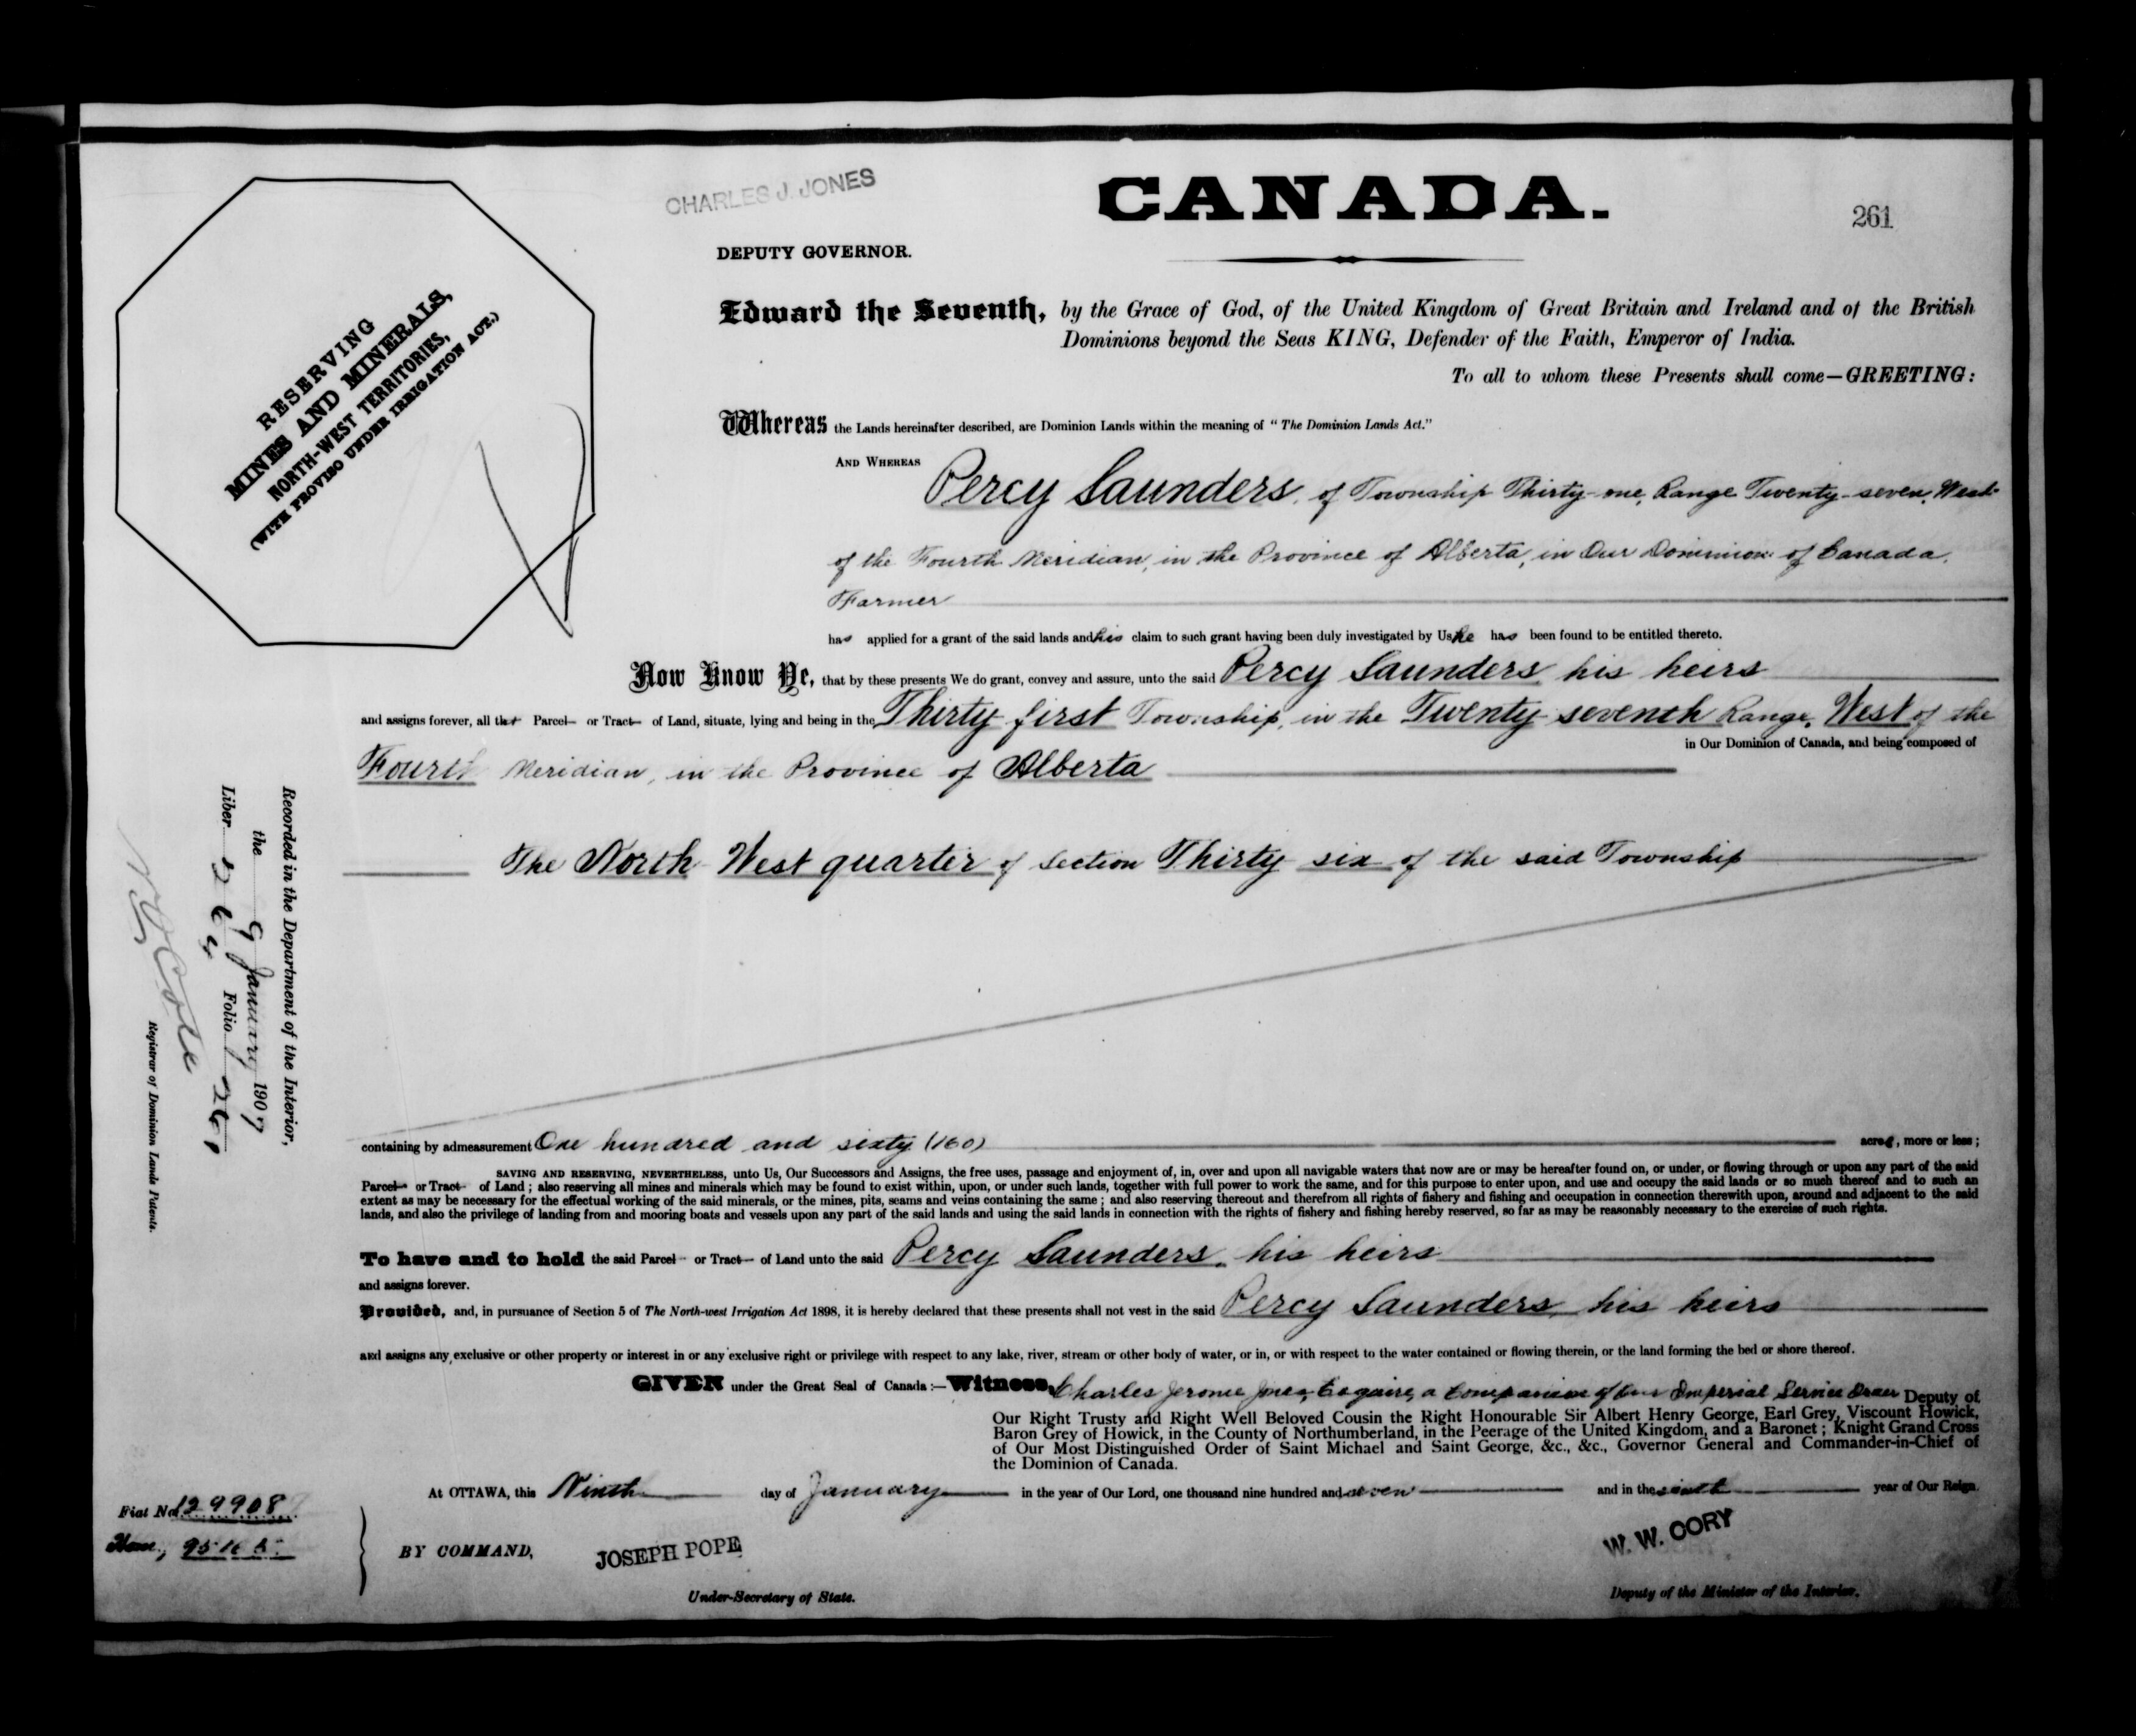 CHARLES J. JONES
CANADA.
261
DEPUTY GOVERNOR.
RESERVING
MINES AND MINERALS,
NORTH-WEST TERRITORIES,
(WITH PROVISO UNDER IRRIGATION ACT.)
Edward the Seventh, by the Grace of God, of the United Kingdom of Great Britain and Ireland and of the British
Dominions beyond the Seas KING, Defender of the Faith, Emperor of India.
To all to whom these Presents shall come—GREETING:
Whereas the Lands hereinafter described, are Dominion Lands within the meaning of "The Dominion Lands Act."
AND WHEREAS
Percy Saunders, of Township Thirty-one, Range Twenty-seven, West
of the Fourth Meridian, in the Province of Alberta, in Our Dominion of Canada,
Farmer
has applied for a grant of the said lands and his claim to such grant having been duly investigated by Us he has been found to be entitled thereto.
Now Know Ye, that by these presents We do grant, convey and assure, unto the said Percy Saunders his heirs
and assigns forever, all that Parcel or Tract of Land, situate, lying and being in the Thirty first Township, in the Twenty seventh Range, West of the
in Our Dominion of Canada, and being composed of
Fourth Meridian, in the Province of Alberta
The North West quarter of Section Thirty six of the said Township
containing by admeasurement One hundred and sixty (160) acres, more or less;
SAVING AND RESERVING, NEVERTHELESS, unto Us, Our Successors and Assigns, the free uses, passage and enjoyment of, in, over and upon all navigable waters that now are or may be hereafter found on, or under, or flowing through or upon any part of the said
Parcel or Tract of Land; also reserving all mines and minerals which may be found to exist within, upon, or under such lands, together with full power to work the same, and for this purpose to enter upon, and use and occupy the said lands or so much thereof and to such an
extent as may be necessary for the effectual working of the said minerals, or the mines, pits, seams and veins containing the same; and also reserving thereout and therefrom all rights of fishery and fishing and occupation in connection therewith upon, around and adjacent to the said
lands, and also the privilege of landing from and mooring boats and vessels upon any part of the said lands and using the said lands in connection with the rights of fishery and fishing hereby reserved, so far as may be reasonably necessary to the exercise of such rights.
To have and to hold the said Parcel or Tract of Land unto the said Percy Saunders, his heirs
and assigns forever.
Provided, and, in pursuance of Section 5 of The North-west Irrigation Act 1898, it is hereby declared that these presents shall not vest in the said Percy Saunders, his heirs
and assigns any exclusive or other property or interest in or any exclusive right or privilege with respect to any lake, river, stream or other body of water, or in, or with respect to the water contained or flowing therein, or the land forming the bed or shore thereof.
GIVEN under the Great Seal of Canada:—Witness, Charles Jerome Jones, Esquire, a Companion of Our Imperial Service Order Deputy of
Our Right Trusty and Right Well Beloved Cousin the Right Honourable Sir Albert Henry George, Earl Grey, Viscount Howick,
Baron Grey of Howick, in the County of Northumberland, in the Peerage of the United Kingdom, and a Baronet; Knight Grand Cross
of Our Most Distinguished Order of Saint Michael and Saint George, &c., &c., Governor General and Commander-in-Chief of
the Dominion of Canada.
At OTTAWA, this Ninth day of January in the year of Our Lord, one thousand nine hundred and seven and in the sixth year of Our Reign.
BY COMMAND,
JOSEPH POPE
Under-Secretary of State.
W. W. CORY
Deputy of the Minister of the Interior.
Recorded in the Department of the Interior,
the 9 January 1907
Liber 264 Folio 261
Registrar of Dominion Lands Patents.
Fiat No. 129908